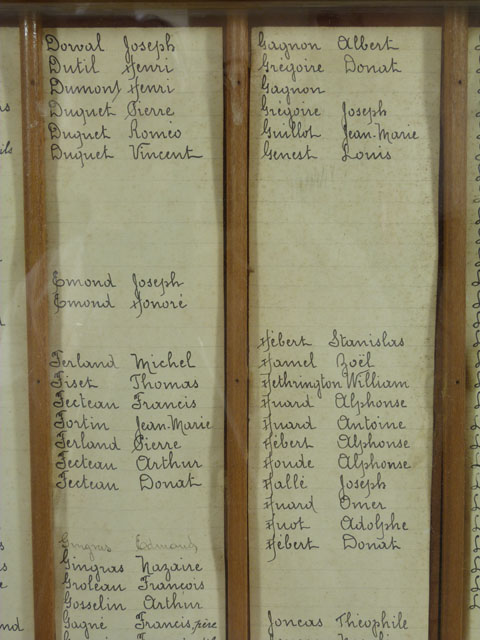 Dorval Joseph
Dutil Henri
Dumont Henri
Duquet Pierre
Duquet Roméo
Duquet Vincent
Emond Joseph
Emond Honoré
Ferland Michel
Fiset Thomas
Fecteau Francis
Fortin Jean-Marie
Ferland Pierre
Fecteau Arthur
Fecteau Donat
Gingras Edmond
Gingras Nazaire
Groleau François
Gosselin Arthur
Gagné Francis, père
Gagnon Albert
Grégoire Donat
Gagnon
Grégoire Joseph
Guillot Jean-Marie
Genest Louis
Hébert Stanislas
Hamel Zoël
Hethrington William
Huard Alphonse
Huard Antoine
Hébert Alphonse
Houde Alphonse
Hallé Joseph
Huard Omer
Huot Adolphe
Hébert Donat
Joncas Théophile